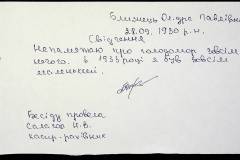 Ближнець Ол-дра Павлівна
28.09.1930 р.н.
Свідчення
Непамятаю про голодомор зовсім
нічого. в 1933 році я був зовсім
маленький.
Бесіду провела
Н.В.
касир-рахівник